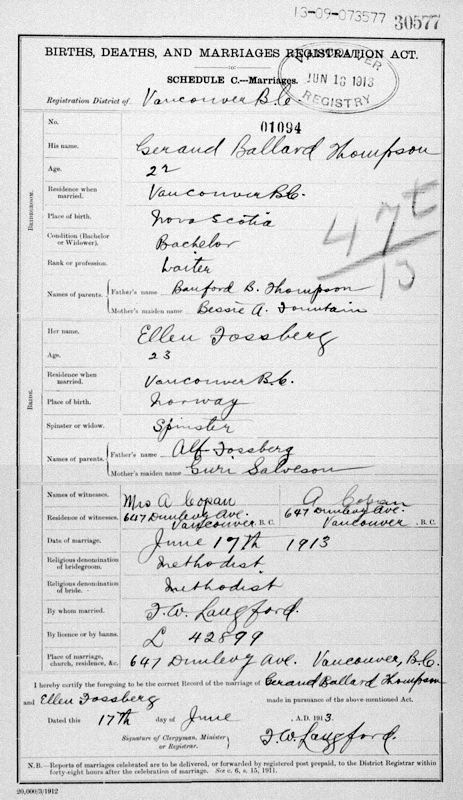 13-09-073577 30577
BIRTHS, DEATHS, AND MARRIAGES REGISTRATION ACT.
SCHEDULE C.—Marriages.
JUN 18 1913
REGISTRY
Registration District of Vancouver B.C.
No. 01094
BRIDEGROOM.
His name. Gerand Ballard Thompson
Age. 22
Residence when married. Vancouver B.C.
Place of birth. Nova Scotia
Condition (Bachelor or Widower). Bachelor
Rank or profession. Waiter
Names of parents. Father's name Banford B. Thompson
Mother's maiden name Bessie A. Fountain
47t
13
BRIDE.
Her name. Ellen Fossberg
Age. 23
Residence when married. Vancouver B.C.
Place of birth. Norway
Spinster or widow. Spinster
Names of parents. Father's name Alf Fossberg
Mother's maiden name Guri Salveson
Names of witnesses. Mrs A Copan A Copan
Residence of witnesses. 647 Dunlevy Ave. Vancouver B.C. 647 Dunlevy Ave. Vancouver, B.C.
Date of marriage. June 17th 1913
Religious denomination of bridegroom. Methodist
Religious denomination of bride. Methodist
By whom married. F.W. Langford.
By licence or by banns. L 42899
Place of marriage, church, residence, &c. 647 Dunlevy Ave. Vancouver, B.C.
I hereby certify the foregoing to be the correct Record of the marriage of Gerand Ballard Thompson
and Ellen Fossberg made in pursuance of the above-mentioned Act.
Dated this 17th day of June, A.D. 1913.
Signature of Clergyman, Minister or Registrar. F.W. Langford.
N.B.—Reports of marriages celebrated are to be delivered, or forwarded by registered post prepaid, to the District Registrar within
forty-eight hours after the celebration of marriage. See c. 6, s. 15, 1911.
20,000/3/1912